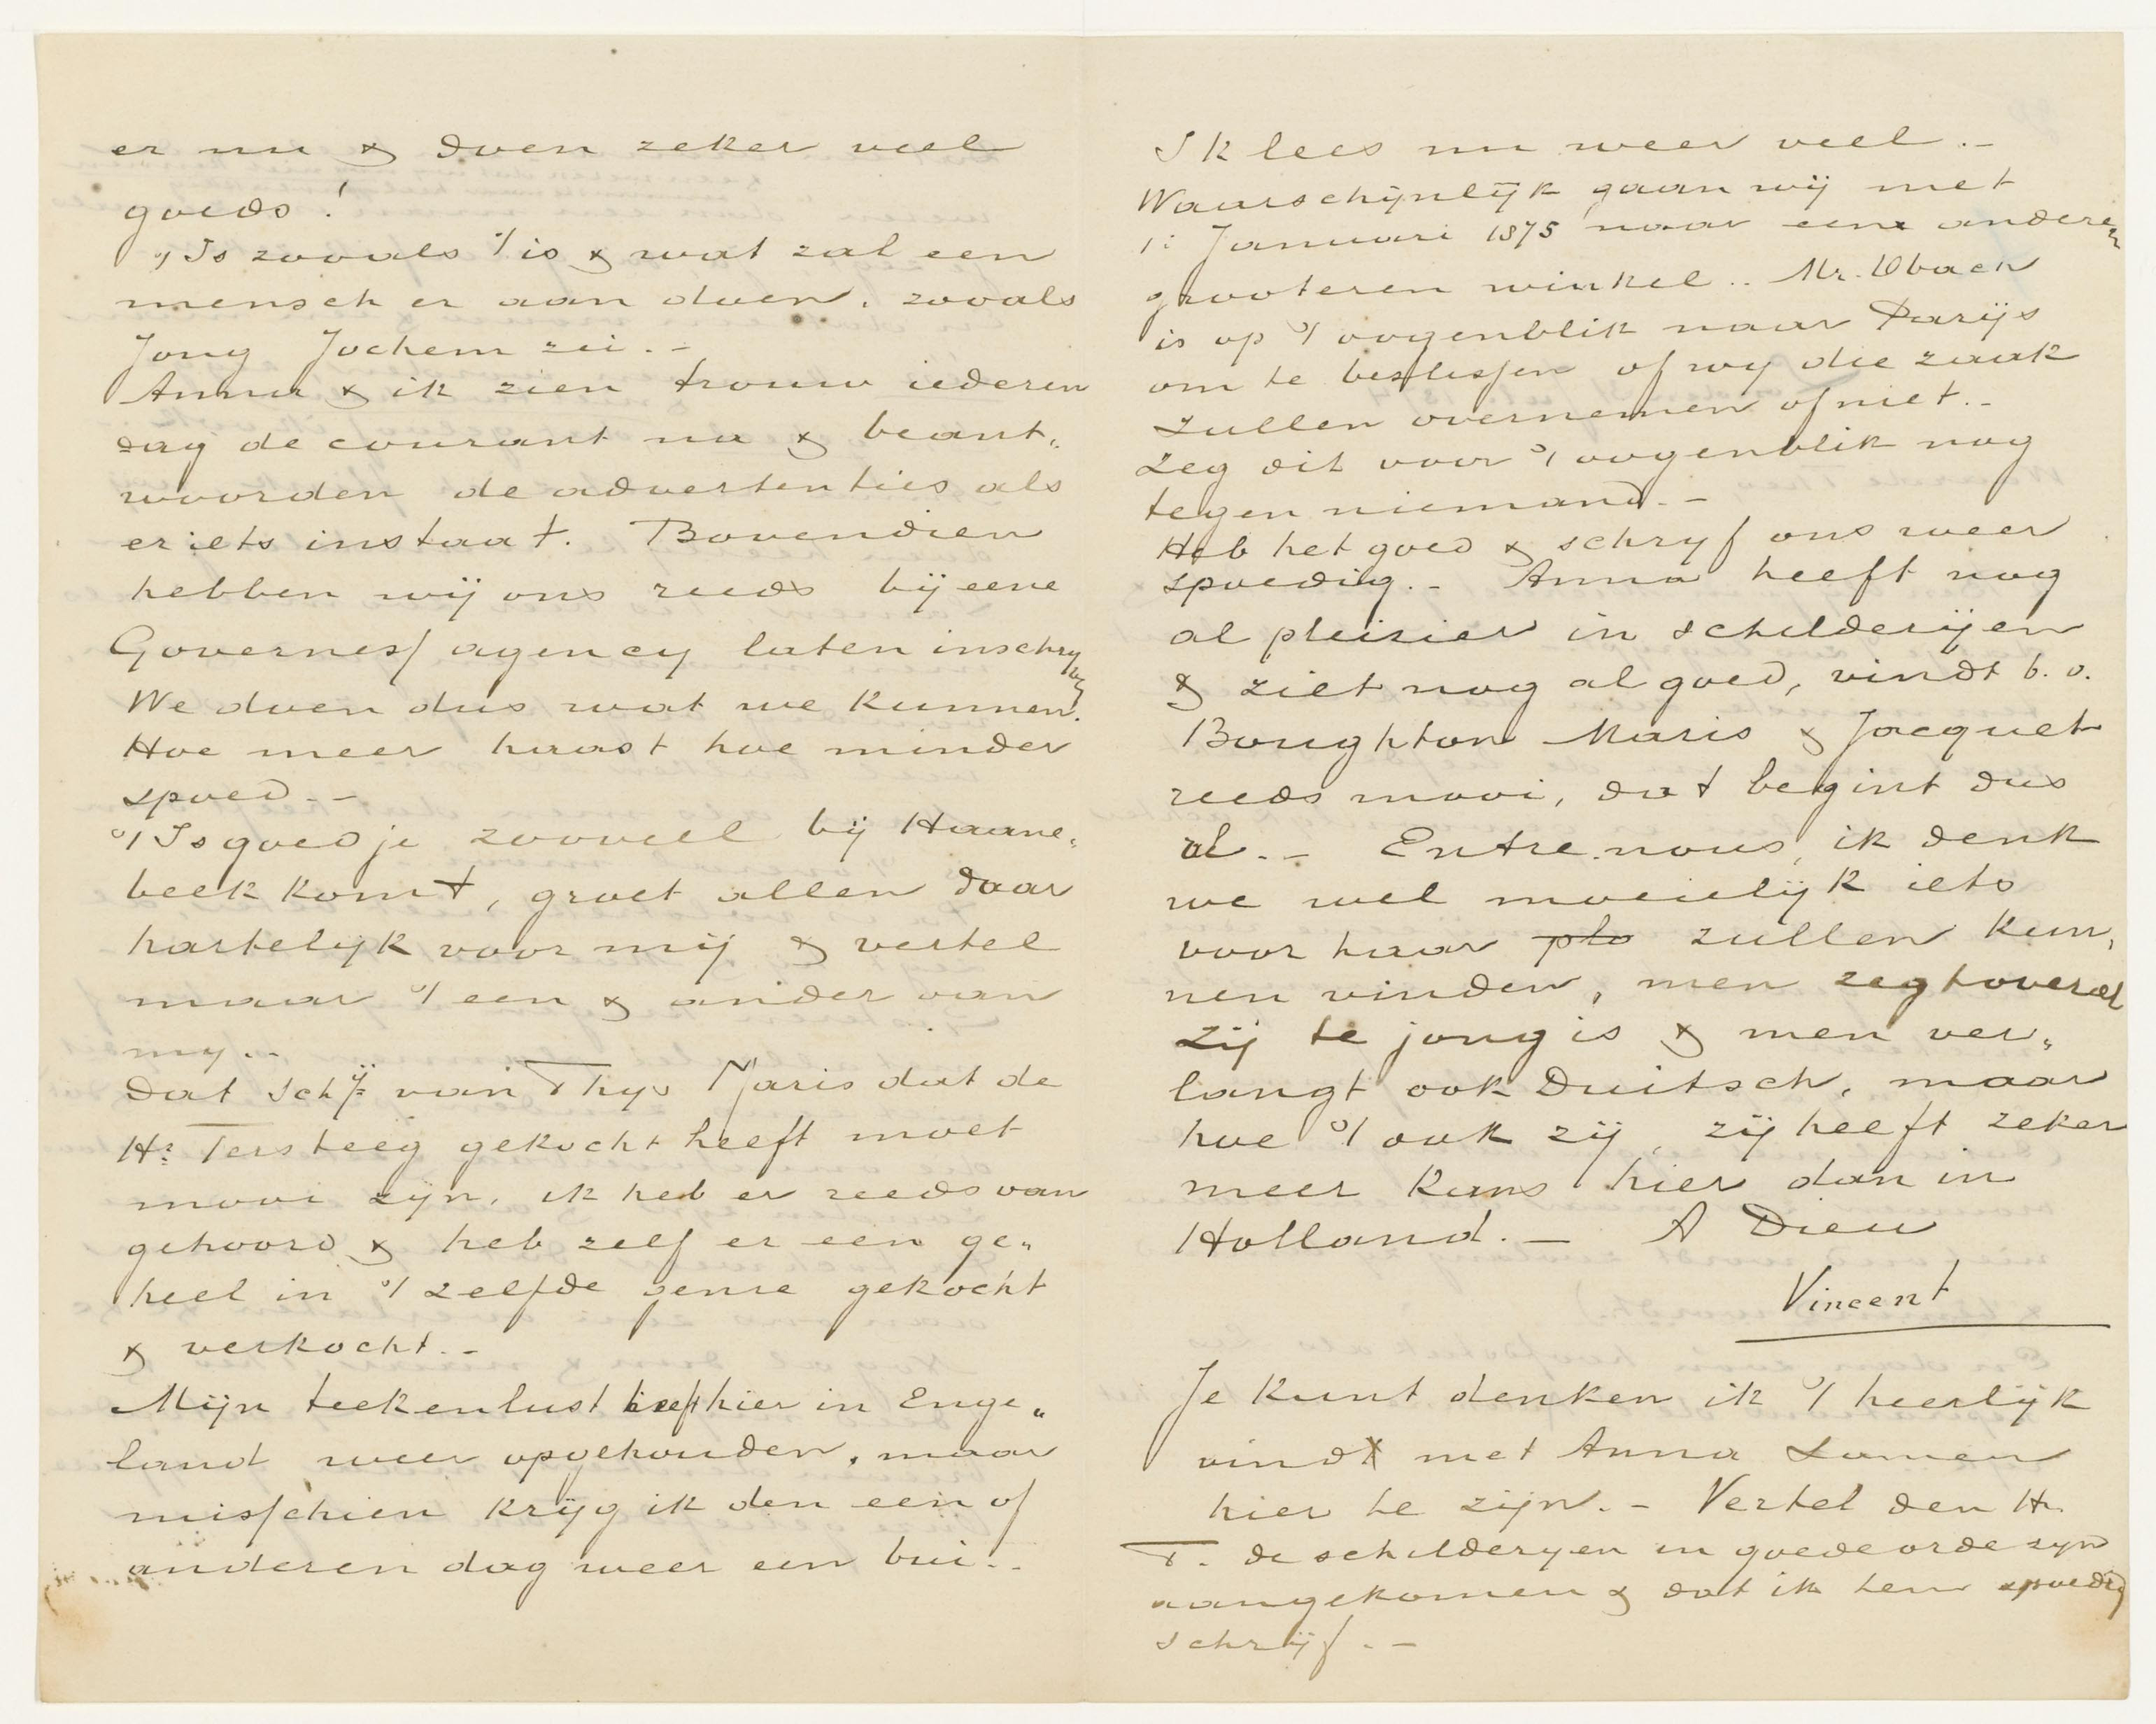 er nu & doen zeker veel
goeds!
't Is zooals 't is & wat zal een
mensch er aan doen, zooals
Jong Jochem zei. –
Anna & ik zien trouw iederen
dag de courant na & beant„
woorden de advertenties als
er iets instaat. Bovendien
hebben wij ons reeds bij eene
Governess agency laten inschryven
We doen dus wat we kunnen.
Hoe meer haast hoe minder
spoed. –
't Is goed je zooveel bij Haane„
beek komt, groet allen daar
hartelijk voor mij & vertel
maar 't een & ander van
my. –
Dat schij van Thijs Maris dat de
Hr Tersteeg gekocht heeft moet
mooi zijn, ik heb er reeds van
gehoord & heb zelf er een ge„
heel in 't zelfde genre gekocht
& verkocht. –
Mijn teekenlust heeft hier in Enge„
land weer opgehouden, maar
misschien krijg ik den een of
anderen dag weer een bui. –
Ik lees nu weer veel. –
Waarschijnlijk gaan wij met
1: Januari 1875 naar een anderen
grooteren winkel.. Mr. Obach
is op 't oogenblik naar Parijs
om te beslissen of wy die zaak
zullen overnemen of niet. –
Zeg dit voor 't oogenblik nog
tegen niemand. –
Heb het goed & schryf ons weer
spoedig. – Anna heeft nog
al pleizier in schilderijen
& ziet nog al goed, vindt b.v.
Boughton Maris & Jacquet
reeds mooi, dat begint dus
al. – Entre nous, ik denk
we wel moeielijk iets
voor haar pla zullen kun„
nen vinden, men zegt overal
zij te jong is & men ver„
langt ook Duitsch, maar
hoe 't ook zij, zij heeft zeker
meer kans hier dan in
Holland. – A Dieu
Vincent
Je kunt denken ik 't heerlijk
vindt met Anna samen
hier te zijn. – Vertel den Hr.
T. de schilderyen in goede orde zyn
aangekomen & dat ik hem spoedig
schrijf. –